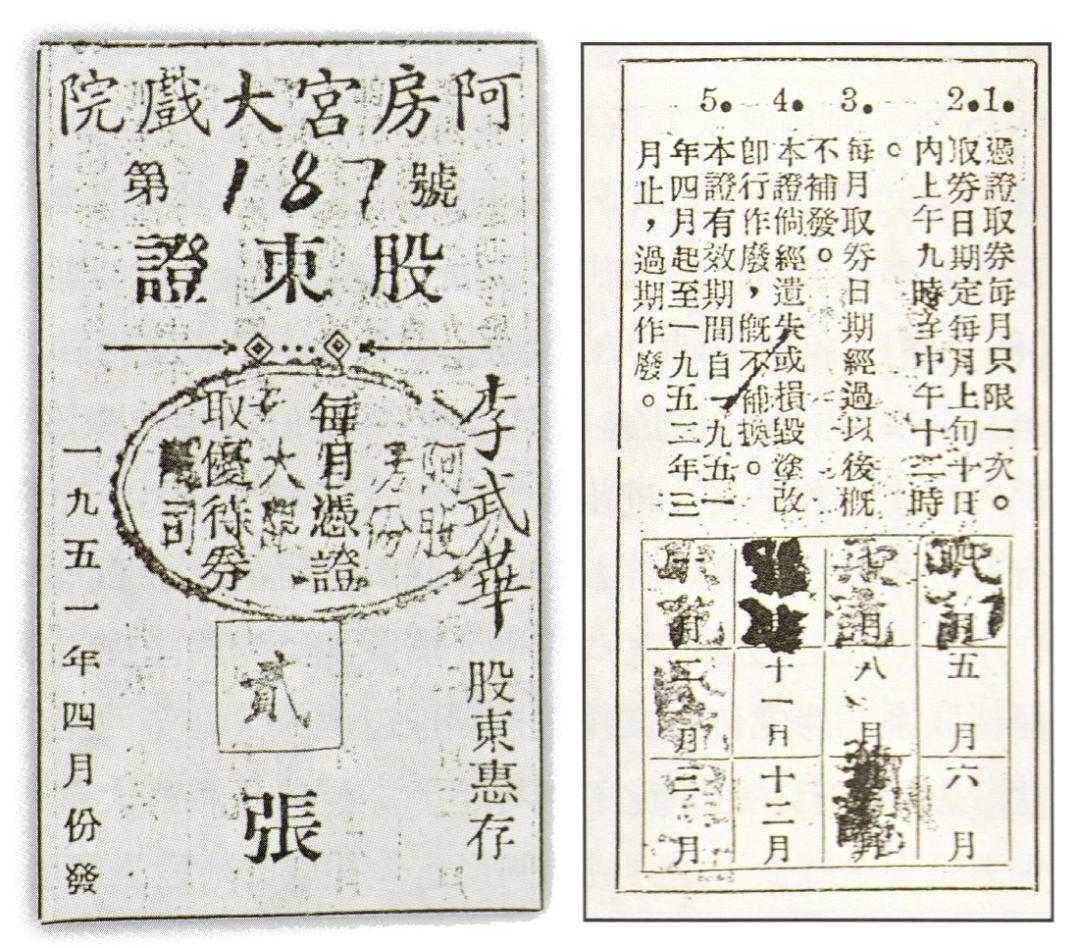 阿房宮大戲院
第187號
股東證
李武華 股東惠存
每月憑證
取優待券
貳
張
一九五一年四月份發
1. 憑證取券每月只限一次。
2. 取券日期定每月上旬十日
內上午九時至中午十二時
。
3. 每月取券日期經過以後概
不補發。
4. 本證倘經遺失或損毀塗改
卽行作廢，概不補換。
5. 本證有效期間自一九五一
年四月起至一九五二年三
月止，過期作廢。
四月
五月
六月
月
八月
月
十一月
十二月
月
二月
三月